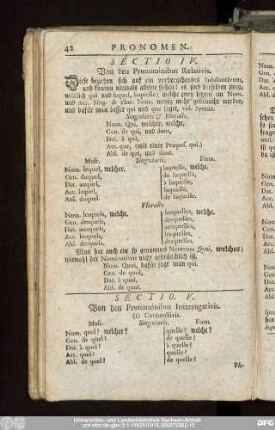 42 PRONOMEN.
SECTIO IV.
Von den Pronominibus Relativis.
Diese beziehen sich auf ein vorhergehendes Substantivum,
und können niemals allein stehen: es sind derselben zwey,
nemlich qui und lequel, laquelle; welche zwey letzte im Nom.
und Acc. Sing. & Plur. Num. wenig mehr gebraucht werden,
und dafür man besser qui und que sagt, vid. Syntax.
Singularis & Pluralis.
Nom. Qui, welcher, welche.
Gen. de qui, und dont,
Dat. à qui,
Acc. que, (mit einer Præposf. qui)
Abl. de qui, und dont.
Masc. Singularis. Foem.
Nom. lequel, welcher. laquelle, welche.
Gen. duquel, de laquelle,
Dat. auquel, à laquelle,
Acc. lequel, laquelle,
Abl. duquel. de laquelle.
Pluralis.
Nom. lesquels, welche. lesquelles, welche.
Gen. desquels, desquelles,
Dat. auxquels, auxquelles,
Acc. lesquels, lesquelles,
Abl. desquels. desquelles.
Man hat auch ein so genannt Neutrum Quoi, welches;
wiewohl der Nominativus nicht gebräuchlich ist.
Nom. Quoi, dafür sagt man qui.
Gen. de quoi,
Dat. à quoi,
Abl. de quoi.
SECTIO. V.
Von den Pronominibus Interrogativis.
Masc. Singularis. Foem.
Nom. quel? welcher? quelle? welche?
Gen. de quel? de quelle?
Dat. à quel? à quelle?
Acc. quel? quelle?
Abl. de quel? de quelle?